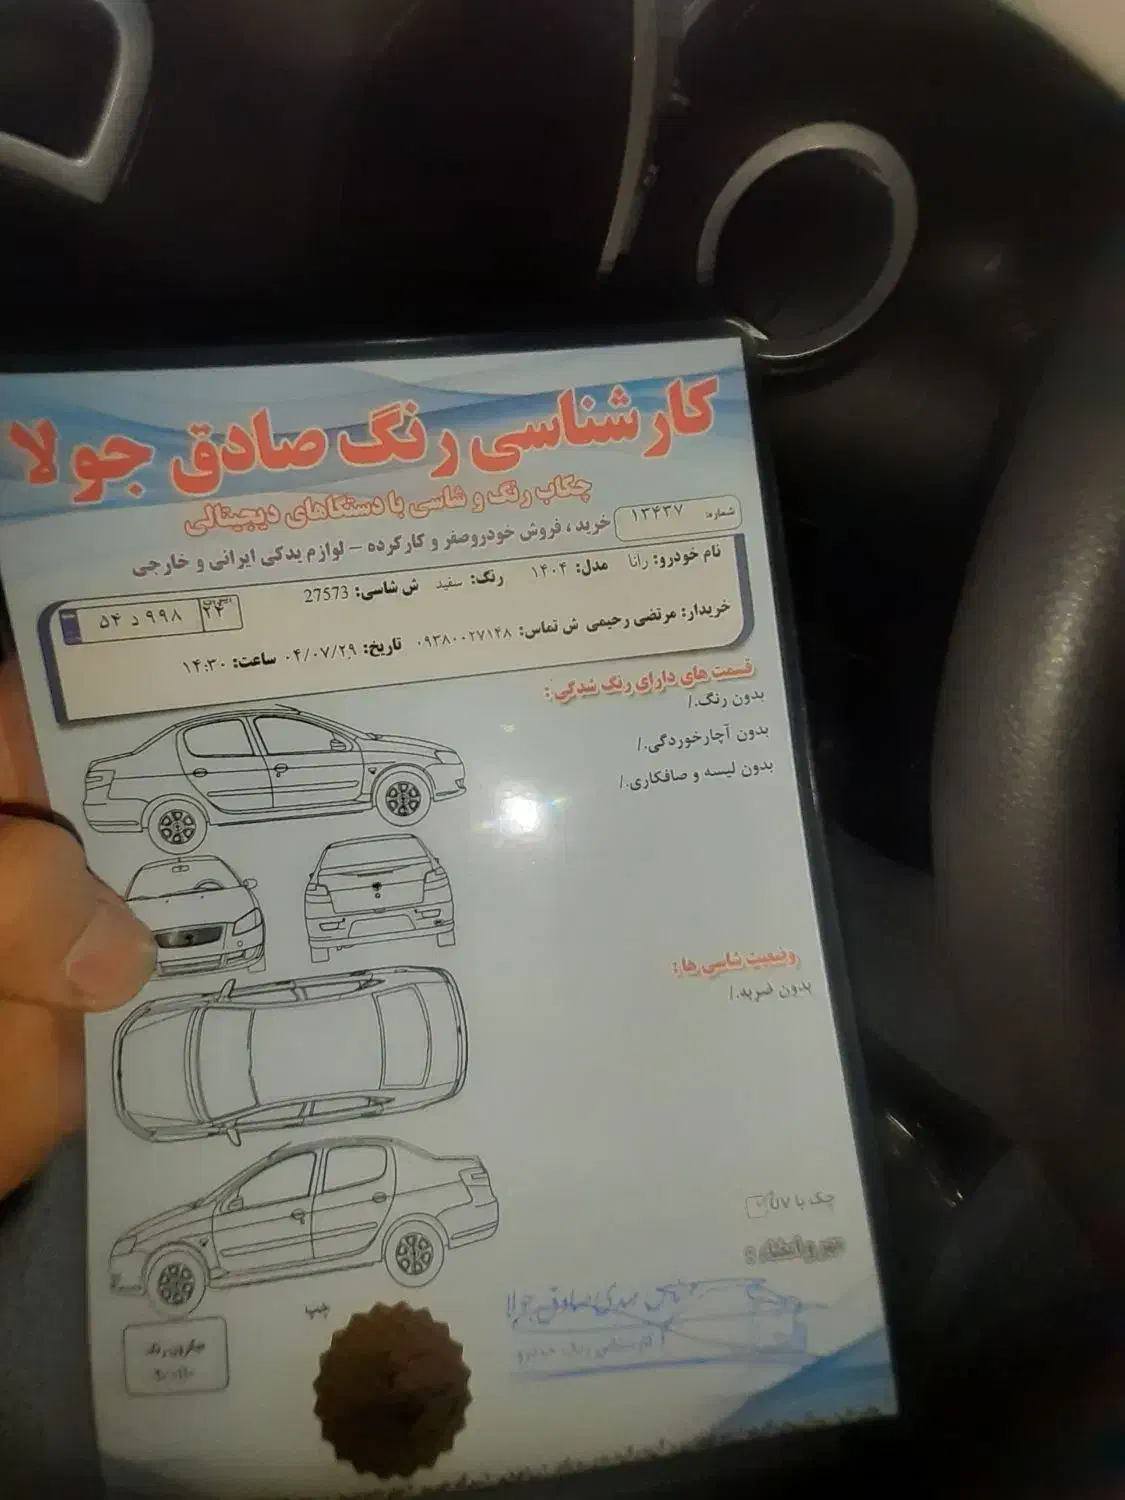 کارشناسی رنگ صادق جولا
چکاپ رنگ و شاسی با دستگاهای دیجیتالی
شماره: ۱۳۴۳۷
خرید ، فروش خودروصفر و کارکرده – لوازم یدکی ایرانی و خارجی
نام خودرو: رانا مدل: ۱۴۰۴ رنگ: سفید ش شاسی: 27573
۵۴ د ۹۹۸ ۲۴
خریدار: مرتضی رحیمی ش تماس: ۰۹۳۸۰۰۲۷۱۴۸ تاریخ: ۰۴/۰۷/۲۹ ساعت: ۱۴:۳۰
قسمت های دارای رنگ شدگی:
بدون رنگ./
بدون آچارخوردگی./
بدون لیسه و صافکاری./
وضعیت شاسی ها:
بدون ضربه./
چک با UV
مهر و امضاء:
صادق جولا
کارشناس رنگ خودرو
چپ
میکرون رنگ